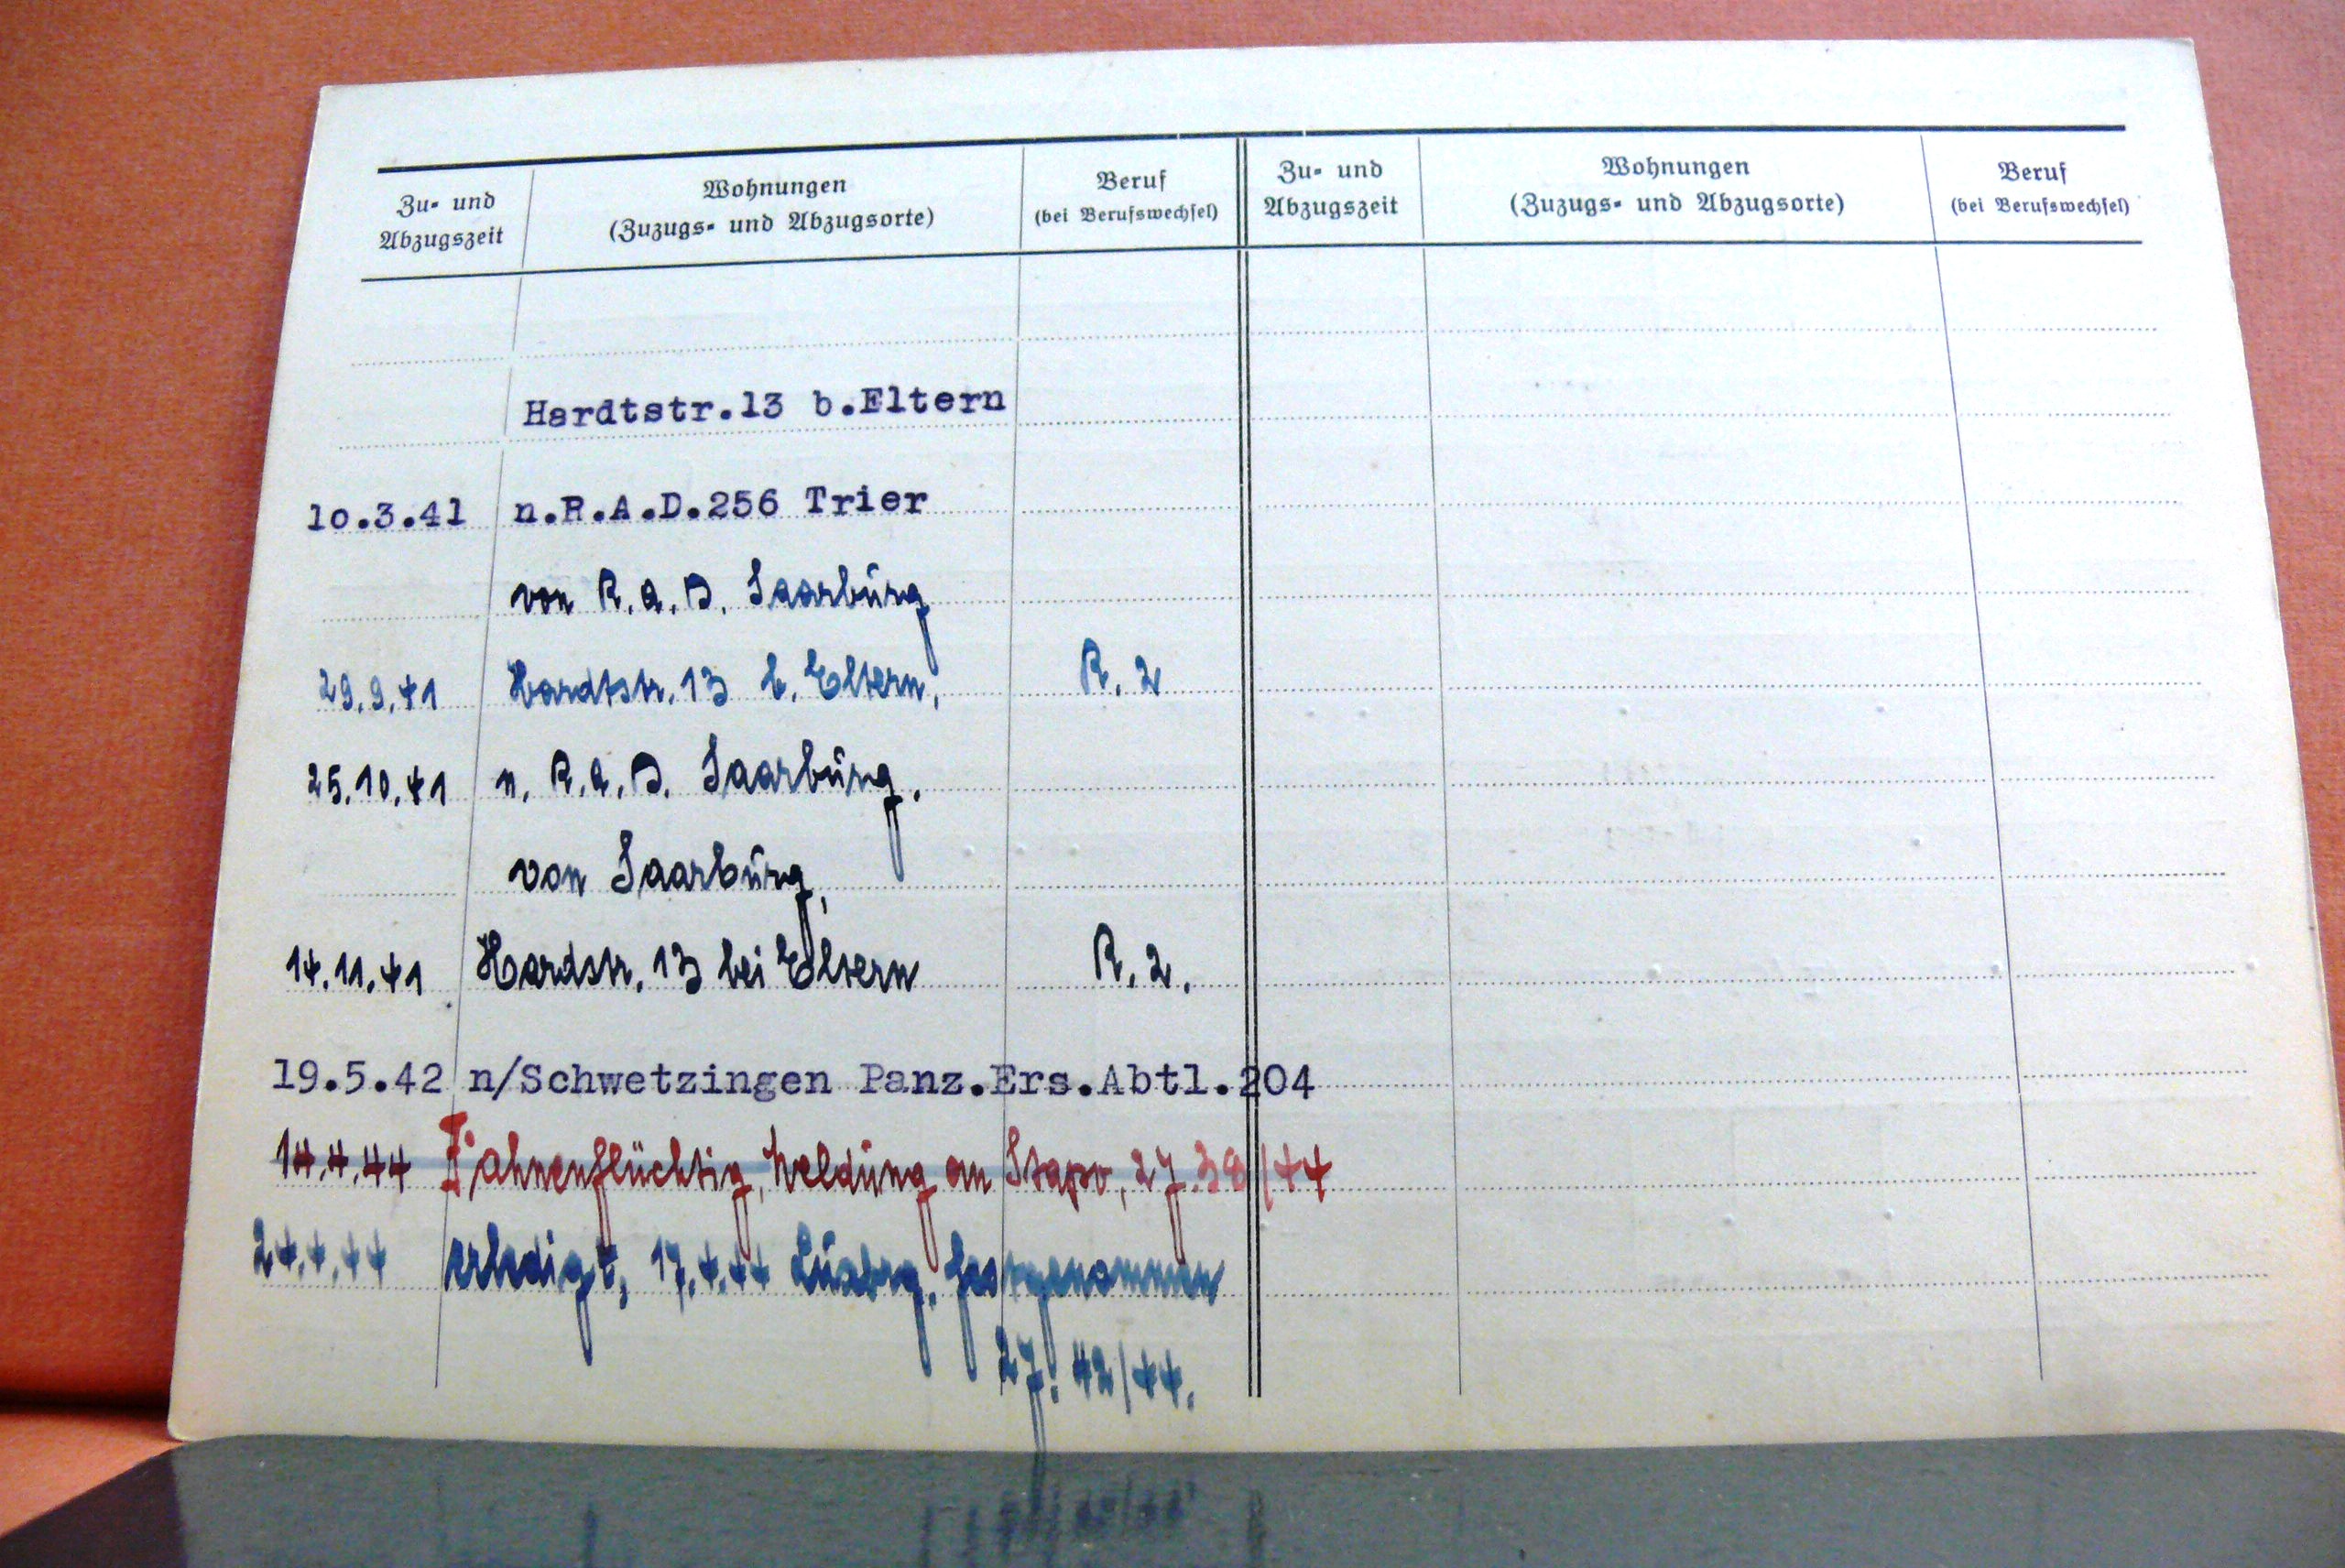 Zu- und Abzugszeit
Wohnungen (Zuzugs- und Abzugsorte)
Beruf (bei Berufswechsel)
Zu- und Abzugszeit
Wohnungen (Zuzugs- und Abzugsorte)
Beruf (bei Berufswechsel)
Hardtstr.13 b.Eltern
10.3.41 n.R.A.D.256 Trier
von R.A.D. Saarburg
29.9.41 Hardtstr. 13 b. Eltern, R. 2
25.10.41 n. R.A.D. Saarburg.
von Saarburg,
14.11.41 Hardstr. 13 bei Eltern R. 2.
19.5.42 n/Schwetzingen Panz.Ers.Abtl.204
14.4.44 Fahnenflüchtig, Meldung an Stapo, 38/44
24.4.44 erledigt, 17.4.44 Luxbg. festgenommen
42/44.